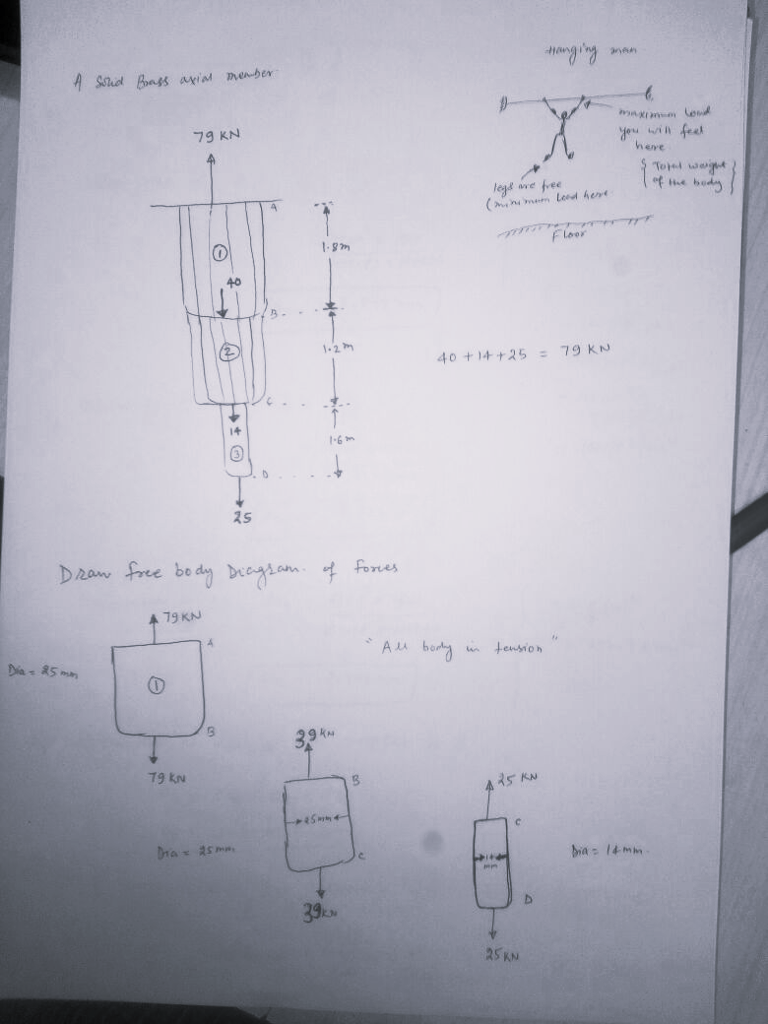 Hanging man
A Solid Brass axial member
79 KN
A
1
40
1.8m
B
2
1.2m
C
14
3
1.6m
D
25
maximum load
you will feel
here
{ Total weight }
{ of the body }
legs are free
(minimum load here
Floor
40 + 14 + 25 = 79 KN
Draw free body Diagram. of forces
79 KN
A
Dia = 25 mm
1
B
79 KN
"All body in tension"
39 KN
B
25mm
Dia = 25 mm
C
39 KN
25 KN
C
14
mm
Dia = 14 mm.
D
25 KN